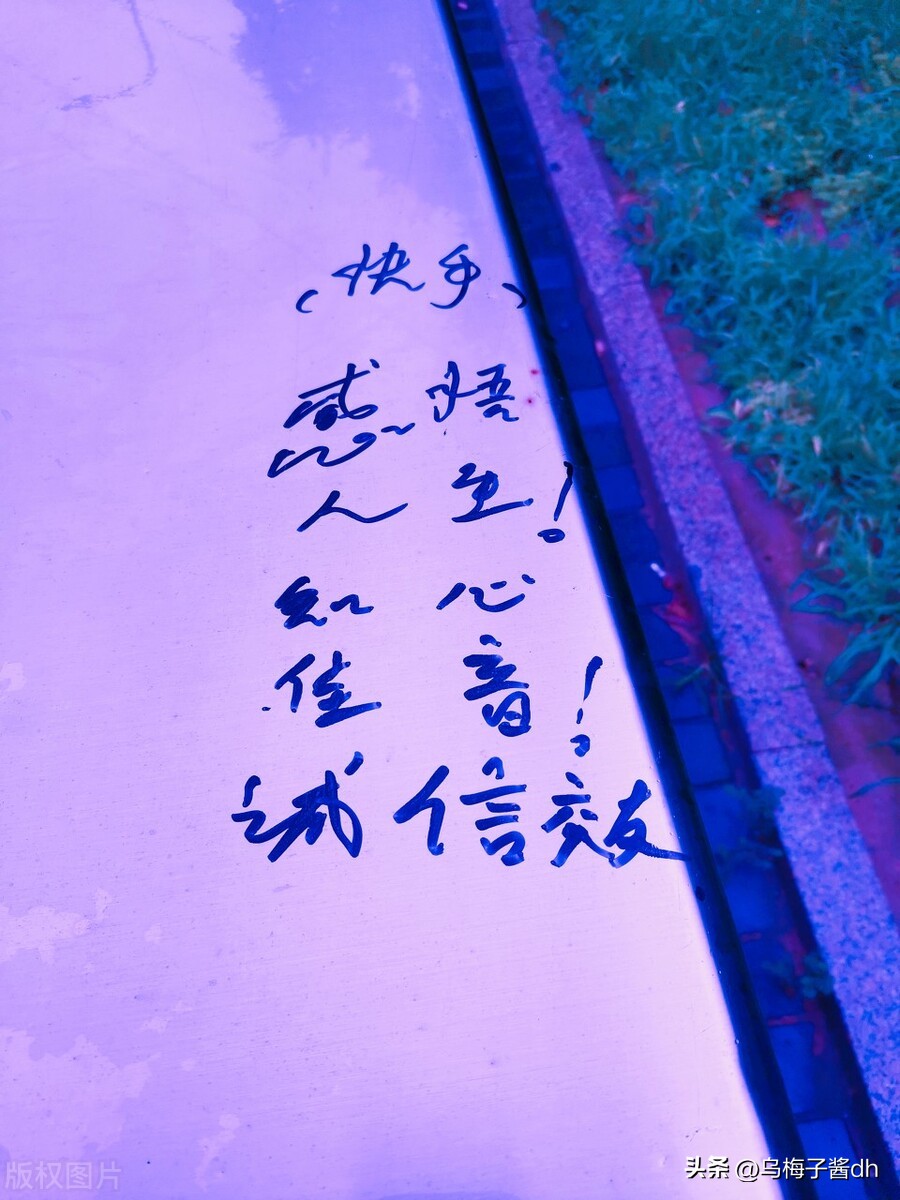 （快手）
感悟
人生！
知心
佳音！
诚信交友
版权图片
头条 @乌梅子酱dh